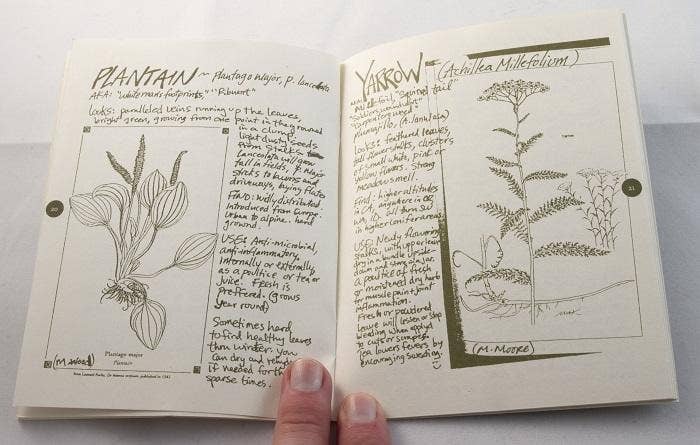 PLANTAIN ~ plantago major, P. lanceolata
AKA: "Whiteman's footprints," "Ribwort"
looks: paralleled veins running up the leaves,
bright green, growing from one point in the ground
in a clump.
light dusty seeds
from stalks.
Lanceolata will grow
tall in fields, P. Major
sticks to lawns and
driveways, laying flatter
FIND: widely distributed
Introduced from Europe.
Urban to alpine. hard
ground.
USE: Anti-microbial,
anti-inflammatory,
internally or externally,
as a poultice or tea or
juice. Fresh is
preferred. (grows
year round)
Sometimes hard
to find healthy leaves
thru winter. you
can dry and
if needed for
sparse times.
(M. Wood)
Plantago major
Plantain
20
YARROW (Achillea Millefolium)
"squirrel tail"
"Carpenter's weed"
Plumajillo, (A. lanulosa)
looks: feathered leaves,
tall slender stalks, clusters
of small white, pink or
yellow flowers. Strong
meadow smell.
Find: higher altitudes
in CA, anywhere in OR,
WA, ID. all turn su
in higher conifer areas.
USE: Newly flowering
stalks, with up or leaves
dry in a bundle upside-
down and store in a jar.
a poultice of fresh
or moistened dry herb
for muscle pain + joint
inflammation.
Fresh or powdered
leave will lessen or stop
bleeding when applied
to cuts or scrapes.
Tea lowers fevers by
encouraging sweating.
(M. MOORE)
21